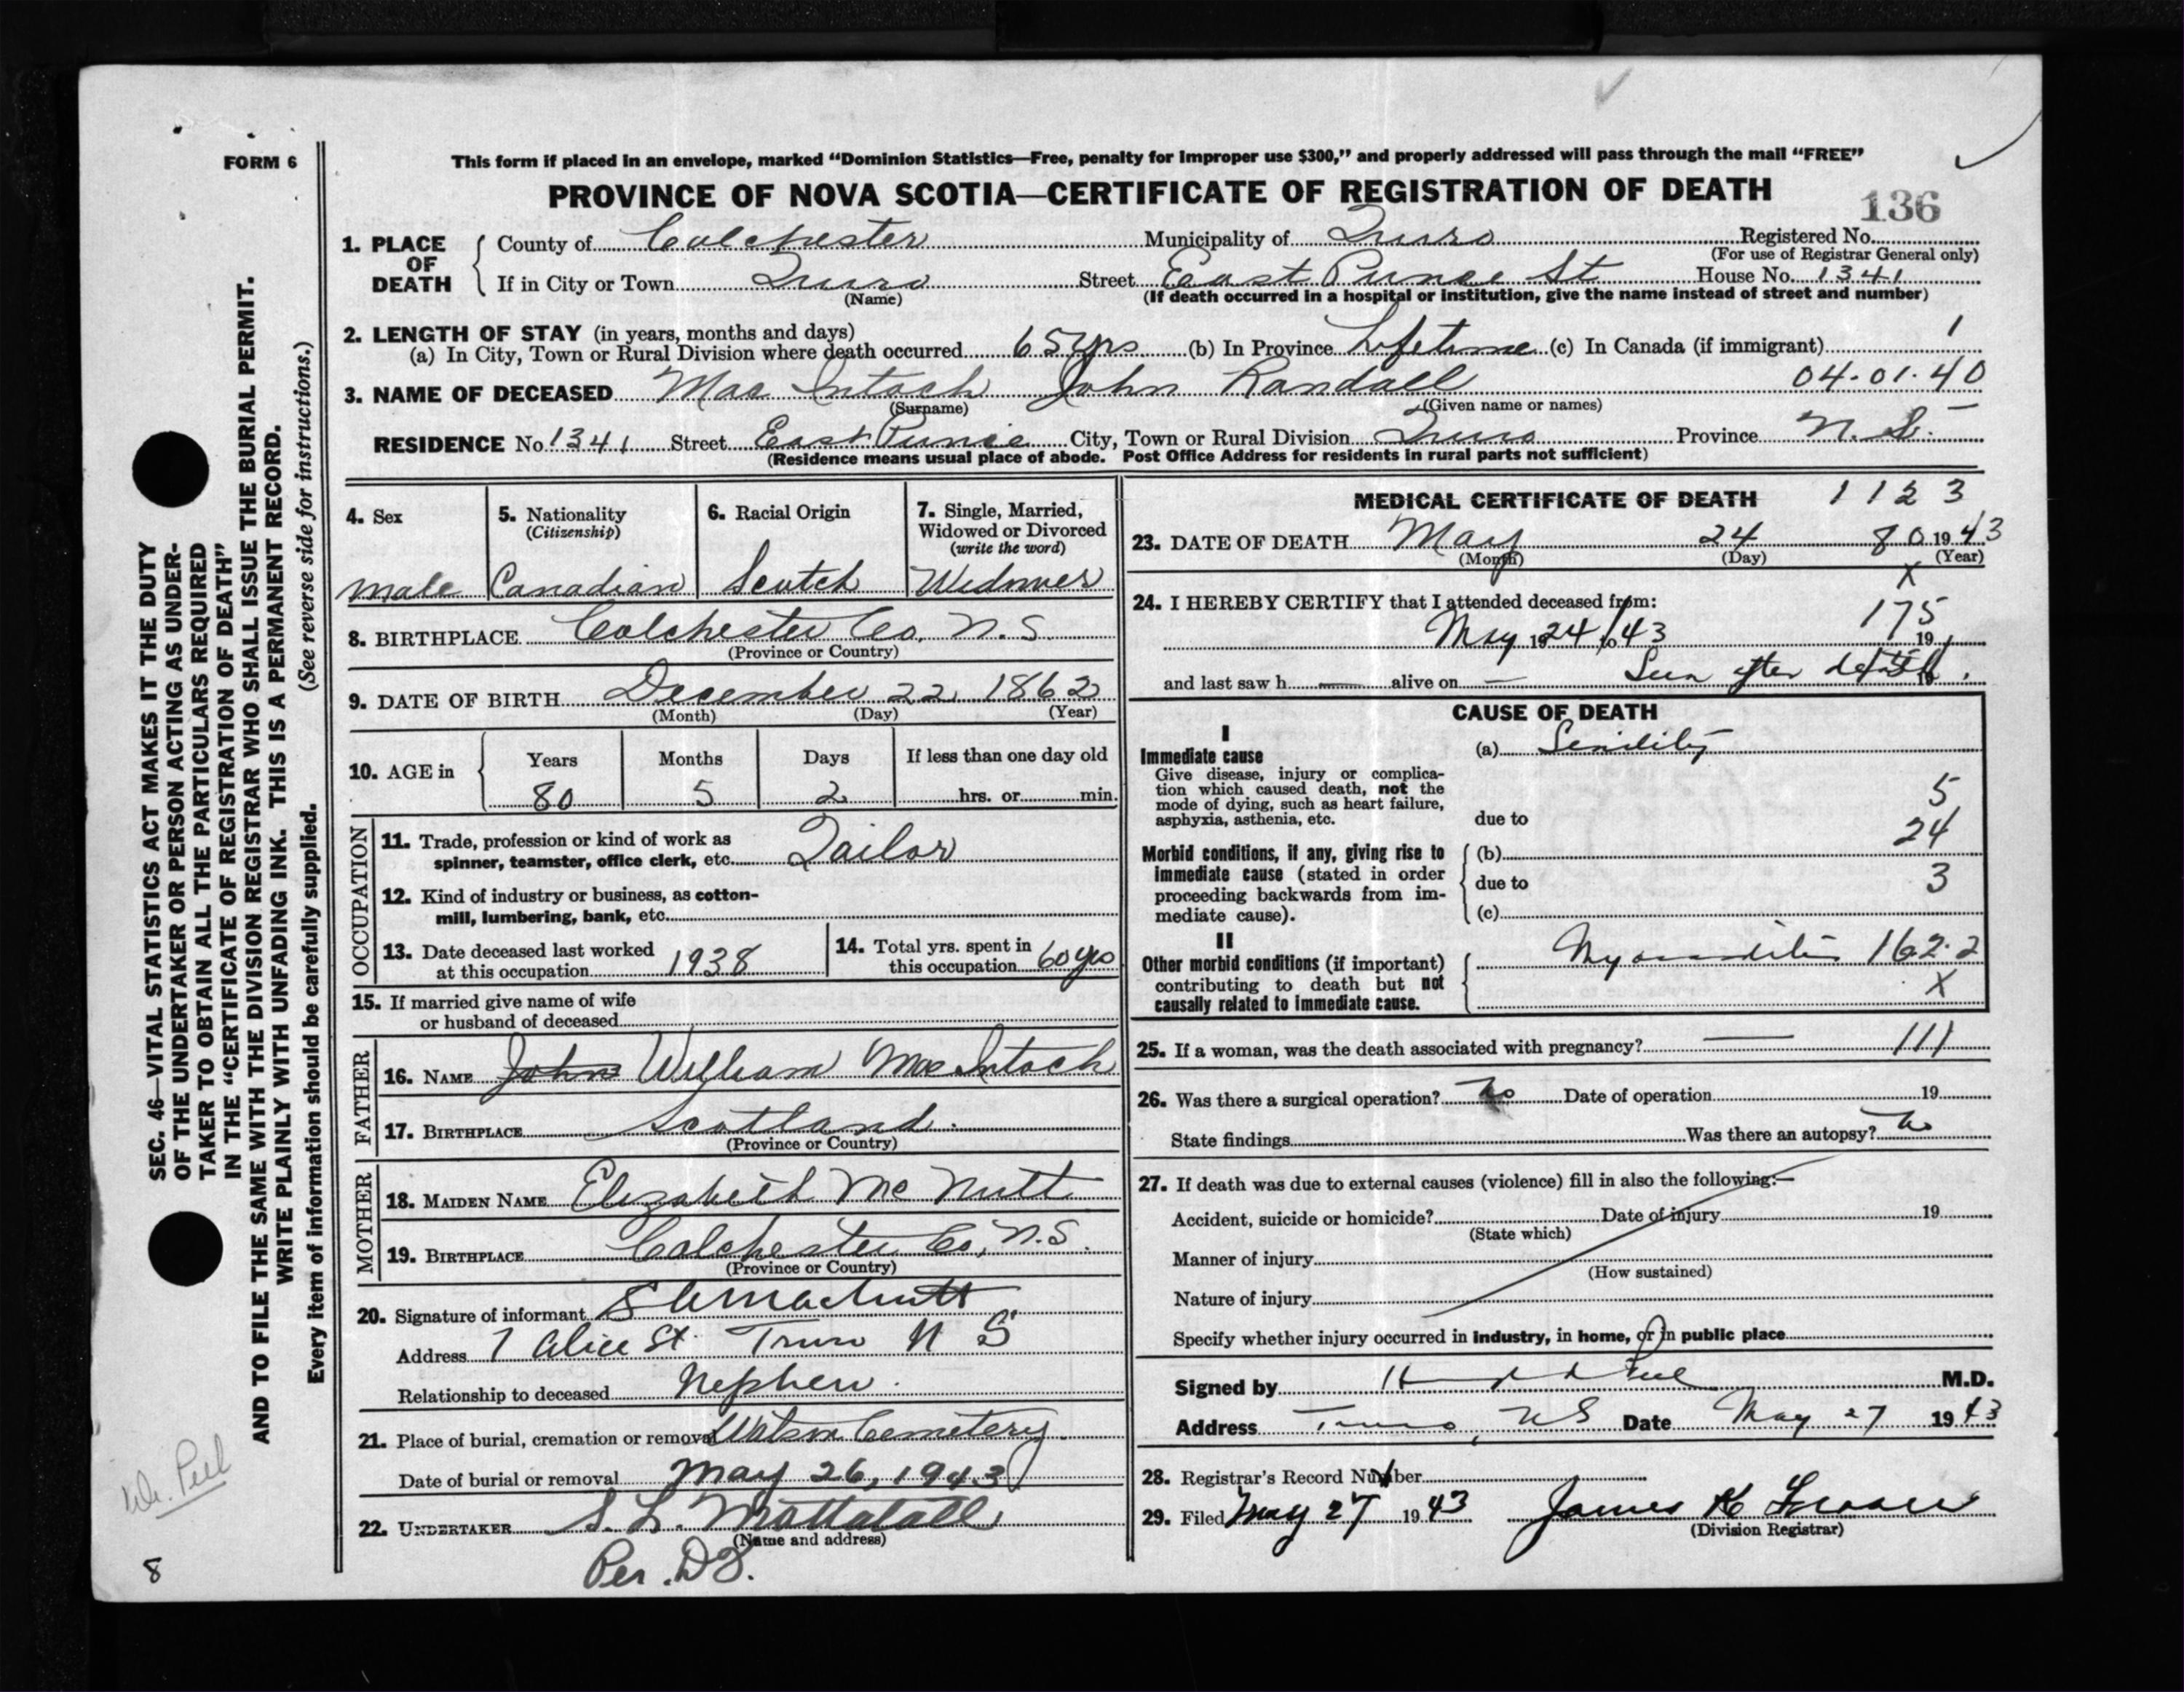 FORM 6
This form if placed in an envelope, marked “Dominion Statistics—Free, penalty for improper use $300,” and properly addressed will pass through the mail “FREE”
PROVINCE OF NOVA SCOTIA—CERTIFICATE OF REGISTRATION OF DEATH
136
1. PLACE OF DEATH County of Colchester Municipality of Truro Registered No.
(For use of Registrar General only)
If in City or Town Truro Street East Prince St House No. 1341
(Name) (If death occurred in a hospital or institution, give the name instead of street and number)
2. LENGTH OF STAY (in years, months and days)
(a) In City, Town or Rural Division where death occurred 65 yrs (b) In Province Lifetime (c) In Canada (if immigrant) 1
3. NAME OF DECEASED Mac Intosh John Randall 04-01-40
(Surname) (Given name or names)
RESIDENCE No 1341 Street East Prince City, Town or Rural Division Truro Province N.S.
(Residence means usual place of abode. Post Office Address for residents in rural parts not sufficient)
4. Sex 5. Nationality (Citizenship) 6. Racial Origin 7. Single, Married, Widowed or Divorced (write the word)
Male Canadian Scotch Widower
8. BIRTHPLACE Colchester Co. N.S.
(Province or Country)
9. DATE OF BIRTH December 22 1862
(Month) (Day) (Year)
10. AGE in Years Months Days If less than one day old
80 5 2 hrs. or min.
OCCUPATION
11. Trade, profession or kind of work as
spinner, teamster, office clerk, etc. Tailor
12. Kind of industry or business, as cotton-
mill, lumbering, bank, etc.
13. Date deceased last worked
at this occupation 1938
14. Total yrs. spent in
this occupation 60 yrs
15. If married give name of wife
or husband of deceased
FATHER
16. NAME John William MacIntosh
17. BIRTHPLACE Scotland.
(Province or Country)
MOTHER
18. MAIDEN NAME Elizabeth Mc Nutt
19. BIRTHPLACE Colchester Co, N.S.
(Province or Country)
20. Signature of informant MacNutt
Address 7 Alice St. Truro N S
Relationship to deceased Nephew.
21. Place of burial, cremation or removal Cemetery
Date of burial or removal May 26, 1943
22. UNDERTAKER S. L. Mattatall
(Name and address)
Per.
MEDICAL CERTIFICATE OF DEATH 1 1 2 3
23. DATE OF DEATH May 24 80 1943
(Month) (Day) (Year)
X
24. I HEREBY CERTIFY that I attended deceased from:
175
May 19 24/43 to 19
and last saw h — alive on — Seen after death. 19
CAUSE OF DEATH
I
Immediate cause
Give disease, injury or complica-
tion which caused death, not the
mode of dying, such as heart failure,
asphyxia, asthenia, etc.
(a) Senility
5
due to
24
Morbid conditions, if any, giving rise to
immediate cause (stated in order
proceeding backwards from im-
mediate cause).
(b)
due to 3
(c)
II
Other morbid conditions (if important)
contributing to death but not
causally related to immediate cause.
Myocarditis 162.2
X
25. If a woman, was the death associated with pregnancy? — 111
26. Was there a surgical operation? No Date of operation 19
State findings Was there an autopsy? No
27. If death was due to external causes (violence) fill in also the following:—
Accident, suicide or homicide? Date of injury 19
(State which)
Manner of injury
(How sustained)
Nature of injury
Specify whether injury occurred in industry, in home, or in public place
Signed by Peel M.D.
Address Truro, NS Date May 27 1943
28. Registrar's Record Number
29. Filed May 27 1943 James K
(Division Registrar)
SEC. 46—VITAL STATISTICS ACT MAKES IT THE DUTY
OF THE UNDERTAKER OR PERSON ACTING AS UNDER-
TAKER TO OBTAIN ALL THE PARTICULARS REQUIRED
IN THE “CERTIFICATE OF REGISTRATION OF DEATH”
AND TO FILE THE SAME WITH THE DIVISION REGISTRAR WHO SHALL ISSUE THE BURIAL PERMIT.
WRITE PLAINLY WITH UNFADING INK. THIS IS A PERMANENT RECORD.
Every item of information should be carefully supplied. (See reverse side for instructions.)
Dr. Peel
8